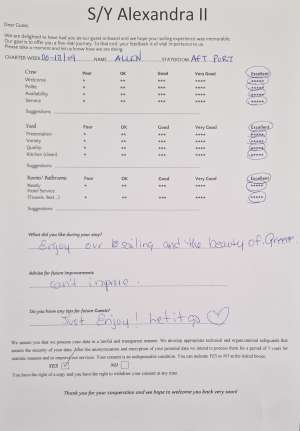 S/Y Alexandra II
Dear Guest,
We are delighted to have had you as our guest onboard and we hope your sailing experience was memorable.
Our goal is to offer you a five-star journey. To that end, your feedback is of vital importance to us.
Please take a moment and let us know how we are doing.
CHARTER WEEK 06-13/09 NAME ALLEN STATEROOM AFT PORT
Crew Poor OK Good Very Good Excellent
Welcome * ** *** **** *****
Polite * ** *** **** *****
Availability * ** *** **** *****
Service * ** *** **** *****
Suggestions
Food Poor OK Good Very Good Excellent
Presentation * ** *** **** *****
Variety * ** *** **** *****
Quality * ** *** **** *****
Kitchen (clean) * ** *** **** *****
Suggestions
Rooms/ Bathrooms Poor OK Good Very Good Excellent
Ready * ** *** **** *****
Hotel Service
(Towels, bed...) * ** *** **** *****
Suggestions
What did you like during your stay?
Enjoy our sailing and the beauty of
Advise for future improvements
Can't improve.
Do you have any tips for future Guests?
Just Enjoy! Let it go
We assure you that we process your data in a lawful and transparent manner. We develop appropriate technical and organizational safeguards that
ensure the security of your data. After the anonymization and encryption of your personal data we intend to process them for a period of 5 years for
statistic reasons and to improve our services. Your consent is an indispensable condition. You can indicate YES or NO in the linked boxes.
YES NO
You have the right of a copy and you have the right to withdraw your consent at any time.
Thank you for your cooperation and we hope to welcome you back very soon!